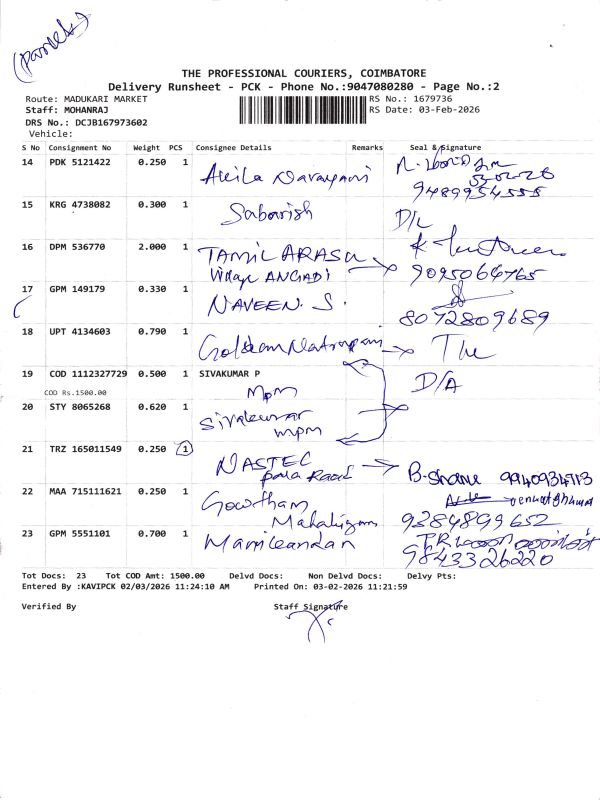 (Parcels)
THE PROFESSIONAL COURIERS, COIMBATORE
Delivery Runsheet - PCK - Phone No.:9047080280 - Page No.:2
Route: MADUKARI MARKET RS No.: 1679736
Staff: MOHANRAJ RS Date: 03-Feb-2026
DRS No.: DCJB167973602
Vehicle:
S No Consignment No Weight PCS Consignee Details Remarks Seal & Signature
14 PDK 5121422 0.250 1 Narayani
9489954555
15 KRG 4738082 0.300 1 Sabarish D/L
16 DPM 536770 2.000 1 TAMIL ARASU
Vidaya ANGADI 9095064765
17 GPM 149179 0.330 1 NAVEEN. S.
8072809689
18 UPT 4134603 0.790 1
19 COD 1112327729 0.500 1 SIVAKUMAR P D/A
COD Rs.1500.00 mpm
20 STY 8065268 0.620 1 Sivakumar
mpm
21 TRZ 165011549 0.250 1 NASTEC B-Shane 9940934713
Road
22 MAA 715111621 0.250 1 Gowtham
Mahalingam 9384899652
23 GPM 5551101 0.700 1 Manikandan
9843326220
Tot Docs: 23 Tot COD Amt: 1500.00 Delvd Docs: Non Delvd Docs: Delvy Pts:
Entered By :KAVIPCK 02/03/2026 11:24:10 AM Printed On: 03-02-2026 11:21:59
Verified By Staff Signature